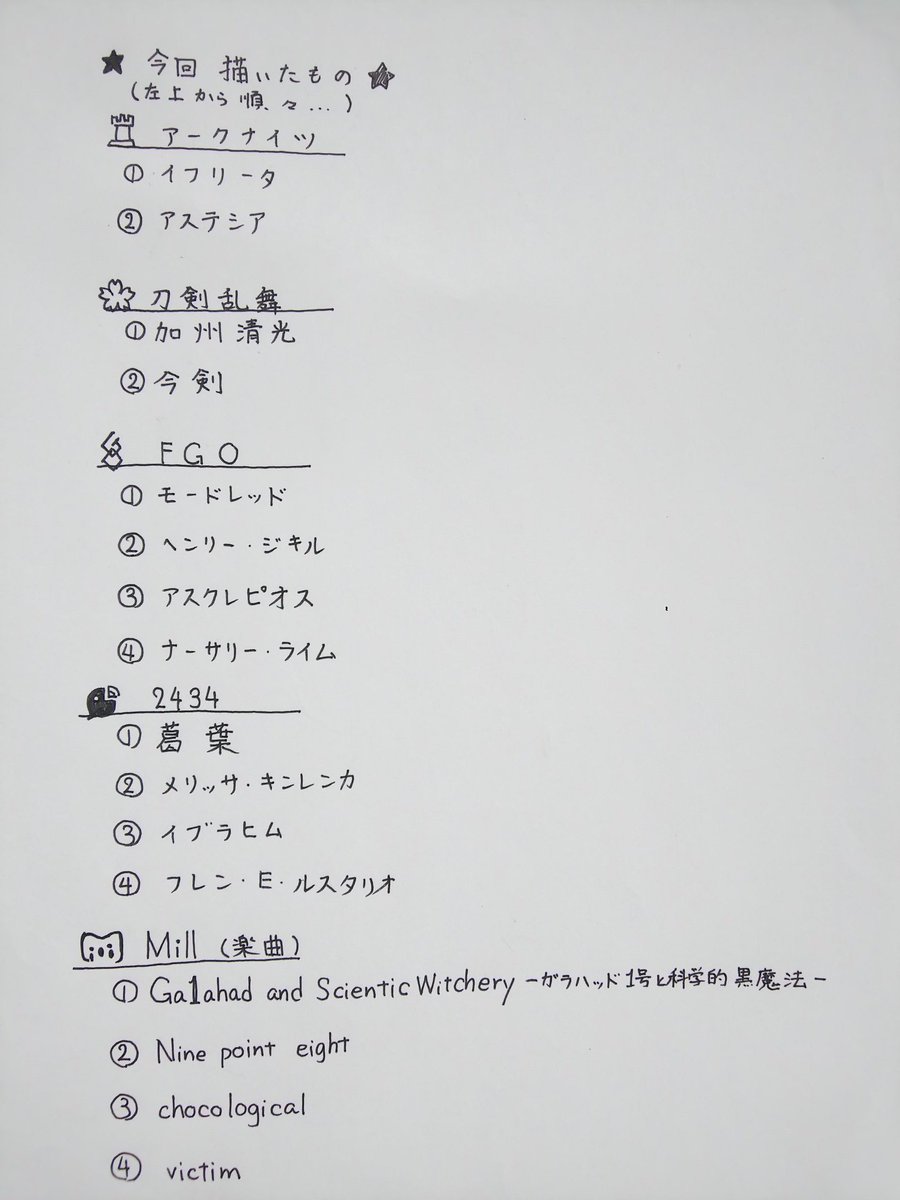 ★ 今回 描いたもの ★
(左上から順々...)
アークナイツ
① イフリータ
② アステシア
刀剣乱舞
① 加州清光
② 今剣
FGO
① モードレッド
② ヘンリー・ジキル
③ アスクレピオス
④ ナーサリー・ライム
2434
① 葛葉
② メリッサ・キンレンカ
③ イブラヒム
④ フレン・E・ルスタリオ
Mili (楽曲)
① Ga1ahad and Scientic Witchery -ガラハッド1号と科学的黒魔法-
② Nine point eight
③ chocological
④ victim